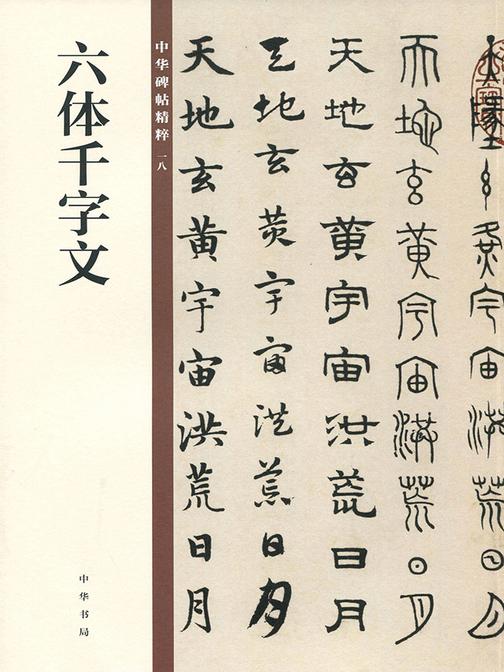 六体千字文
中华书局
中华碑帖精粹 一八
天地玄黄宇宙洪荒日月
天地玄黄宇宙洪荒日月
天地玄黄宇宙洪荒日月
天地玄黄宇宙洪荒日月